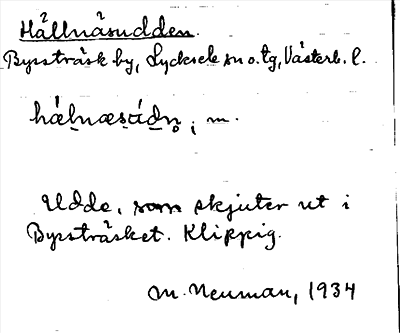 Hällnäsudden.
Byssträsk by, Lycksele sn o. tg, Västerb. l.
m.
Udde, som skjuter ut i
Byssträsket. Klippig.
M. Neuman, 1934